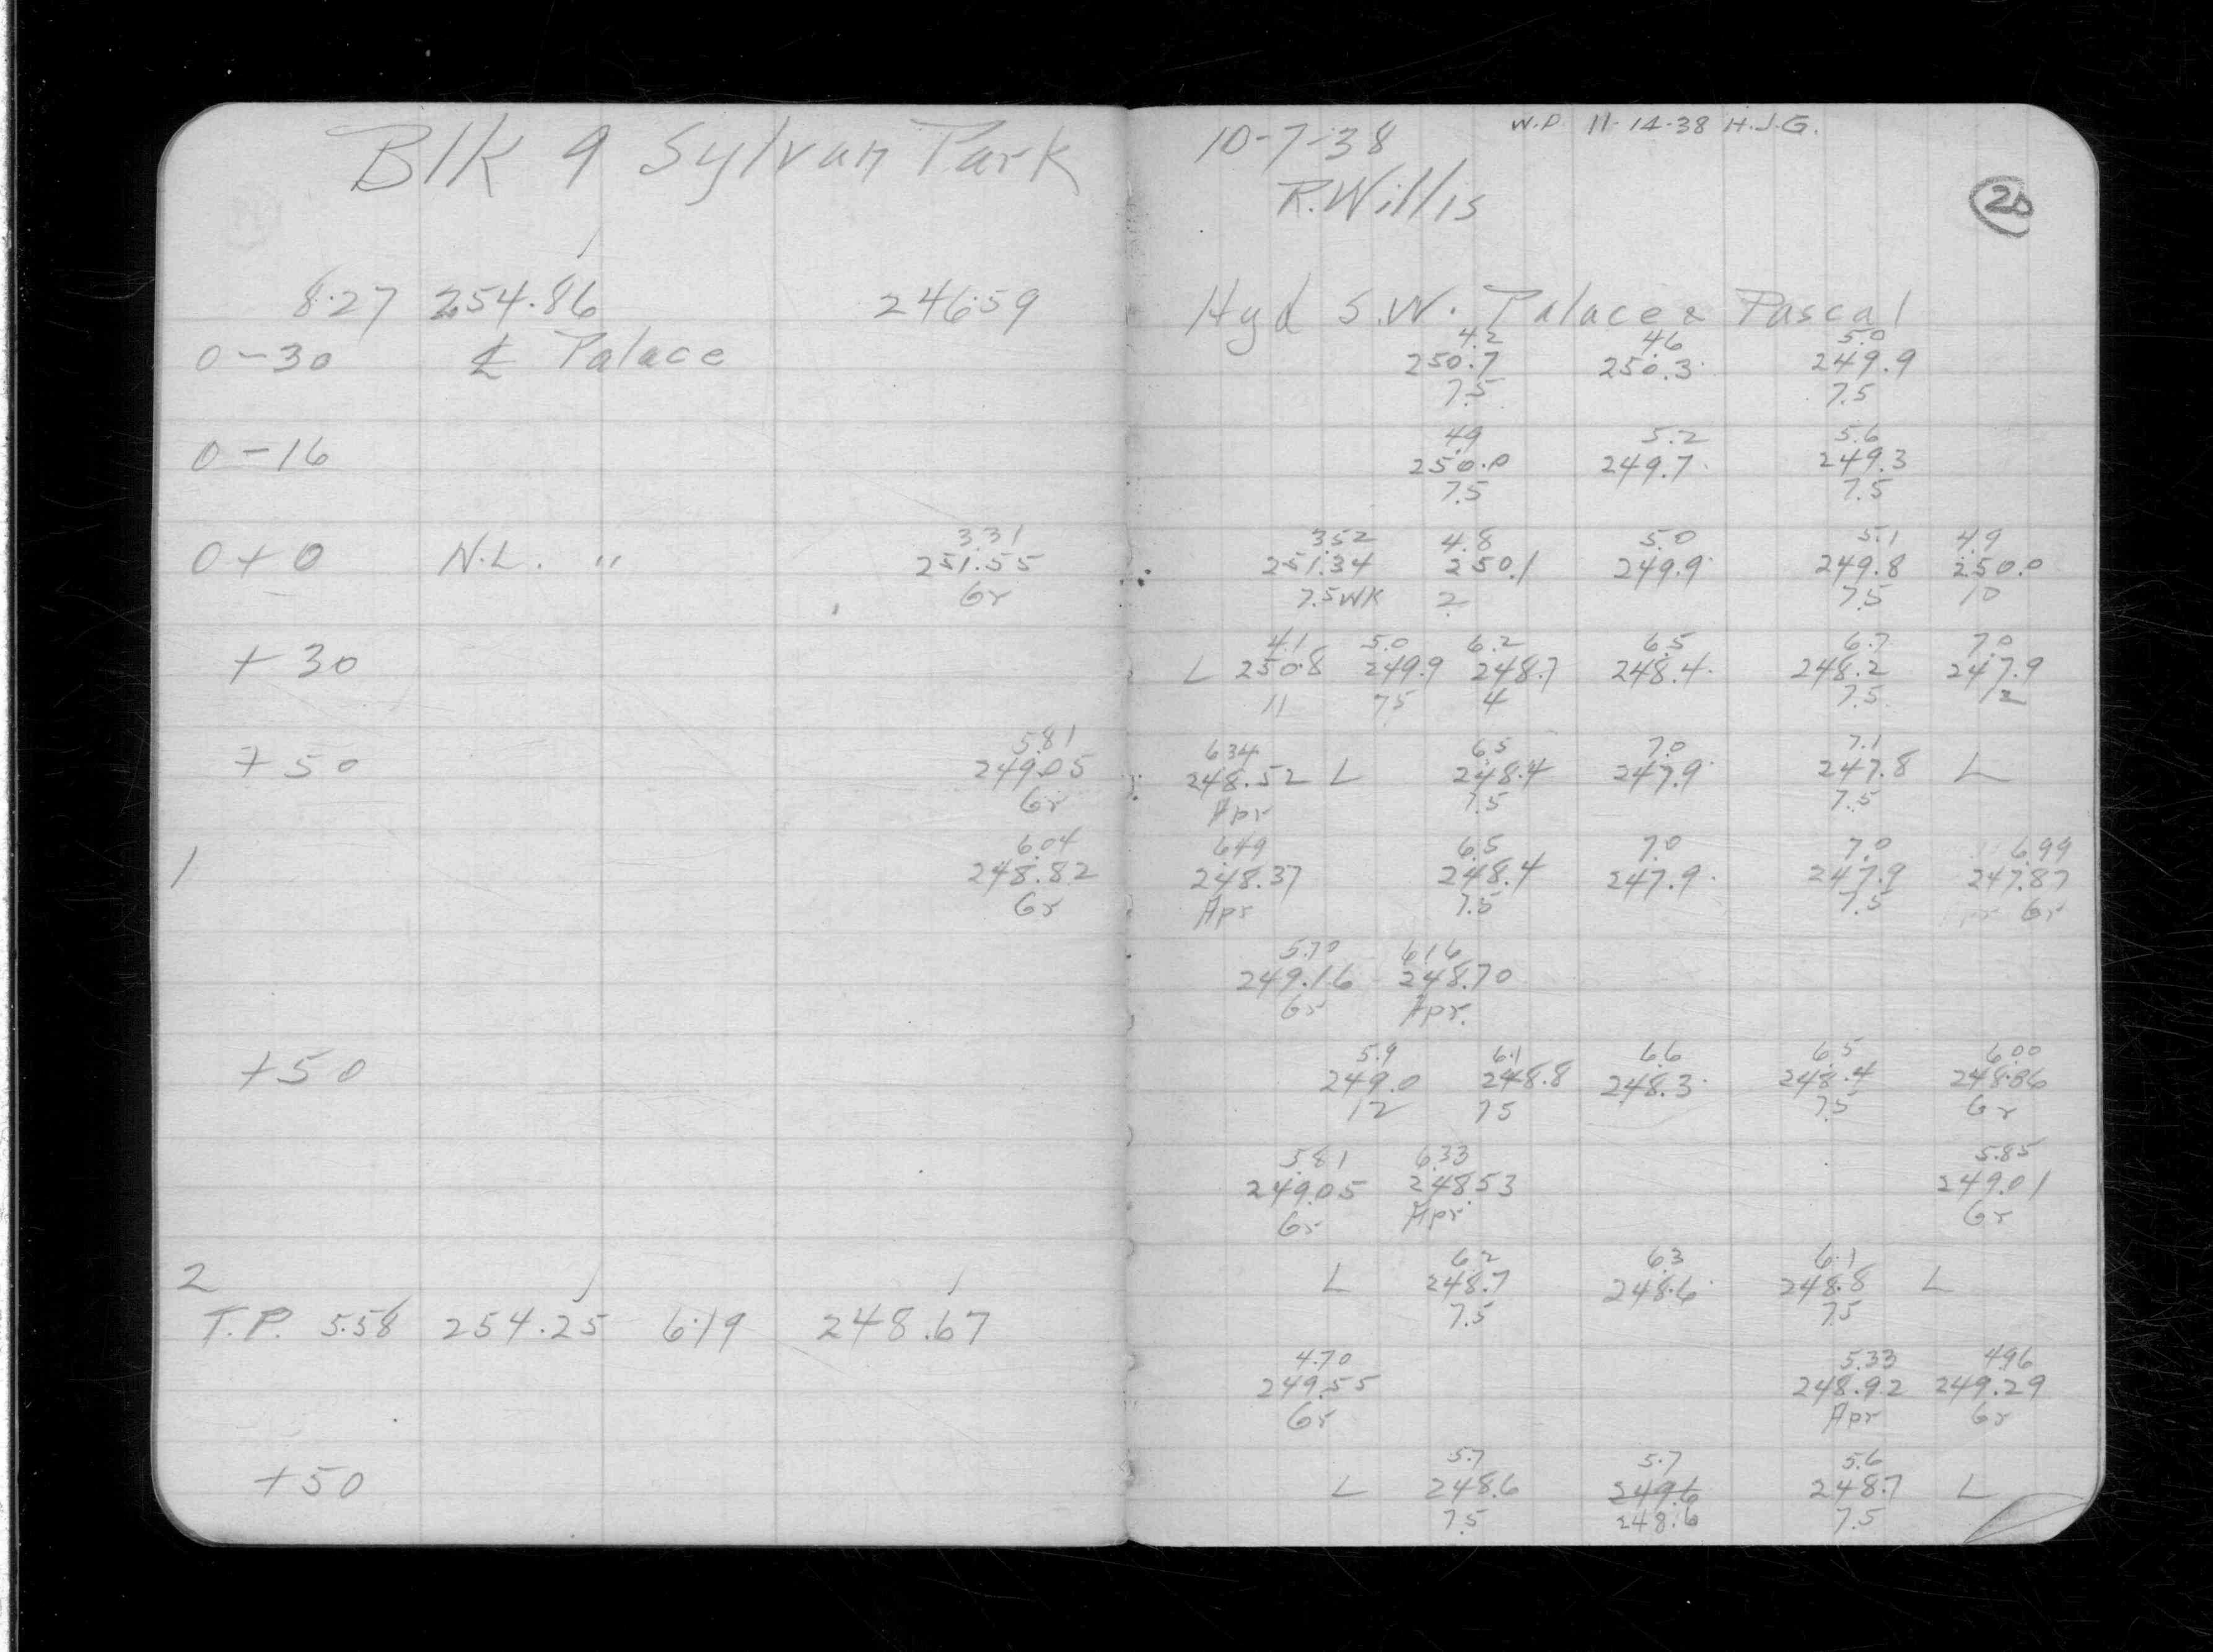 Blk 9 Sylvan Park
8.27 254.86 246.59
0-30 ℄ Palace
0-16
0+0 N.L. "
3.31
251.55
Gr
+30
+50
5.81
249.05
Gr
1
6.04
248.82
Gr
+50
2
T.P. 5.58 254.25 6.19 248.67
+50
W.P 11-14-38 H.J.G.
10-7-38
R. Willis
20
Hyd S.W. Palace & Pascal
4.2 4.6 5.0
250.7 250.3 249.9
7.5 7.5
4.9 5.2 5.6
250.0 249.7 249.3
7.5 7.5
3.52 4.8 5.0 5.1 4.9
251.34 250.1 249.9 249.8 250.0
7.5 WK 2 7.5 10
4.1 5.0 6.2 6.5 6.7 7.0
L 250.8 249.9 248.7 248.4 248.2 247.9
11 7.5 4 7.5 12
6.34 6.5 7.0 7.1
248.52 L 248.4 247.9 247.8 L
Apr 7.5 7.5
6.49 6.5 7.0 7.0 6.99
248.37 248.4 247.9 247.9 247.87
Apr 7.5 7.5 Gr
5.70 6.16
249.16 248.70
Gr Apr.
5.9 6.1 6.6 6.5 6.00
249.0 248.8 248.3 248.4 248.86
12 7.5 7.5 Gr
5.81 6.33 5.85
249.05 248.53 249.01
Gr Apr. Gr
6.2 6.3 6.1
L 248.7 248.6 248.8 L
7.5 7.5
4.70 5.33 4.96
249.55 248.92 249.29
Gr Apr Gr
5.7 5.7 5.6
L 248.6 249.6 248.7 L
7.5 248.6 7.5